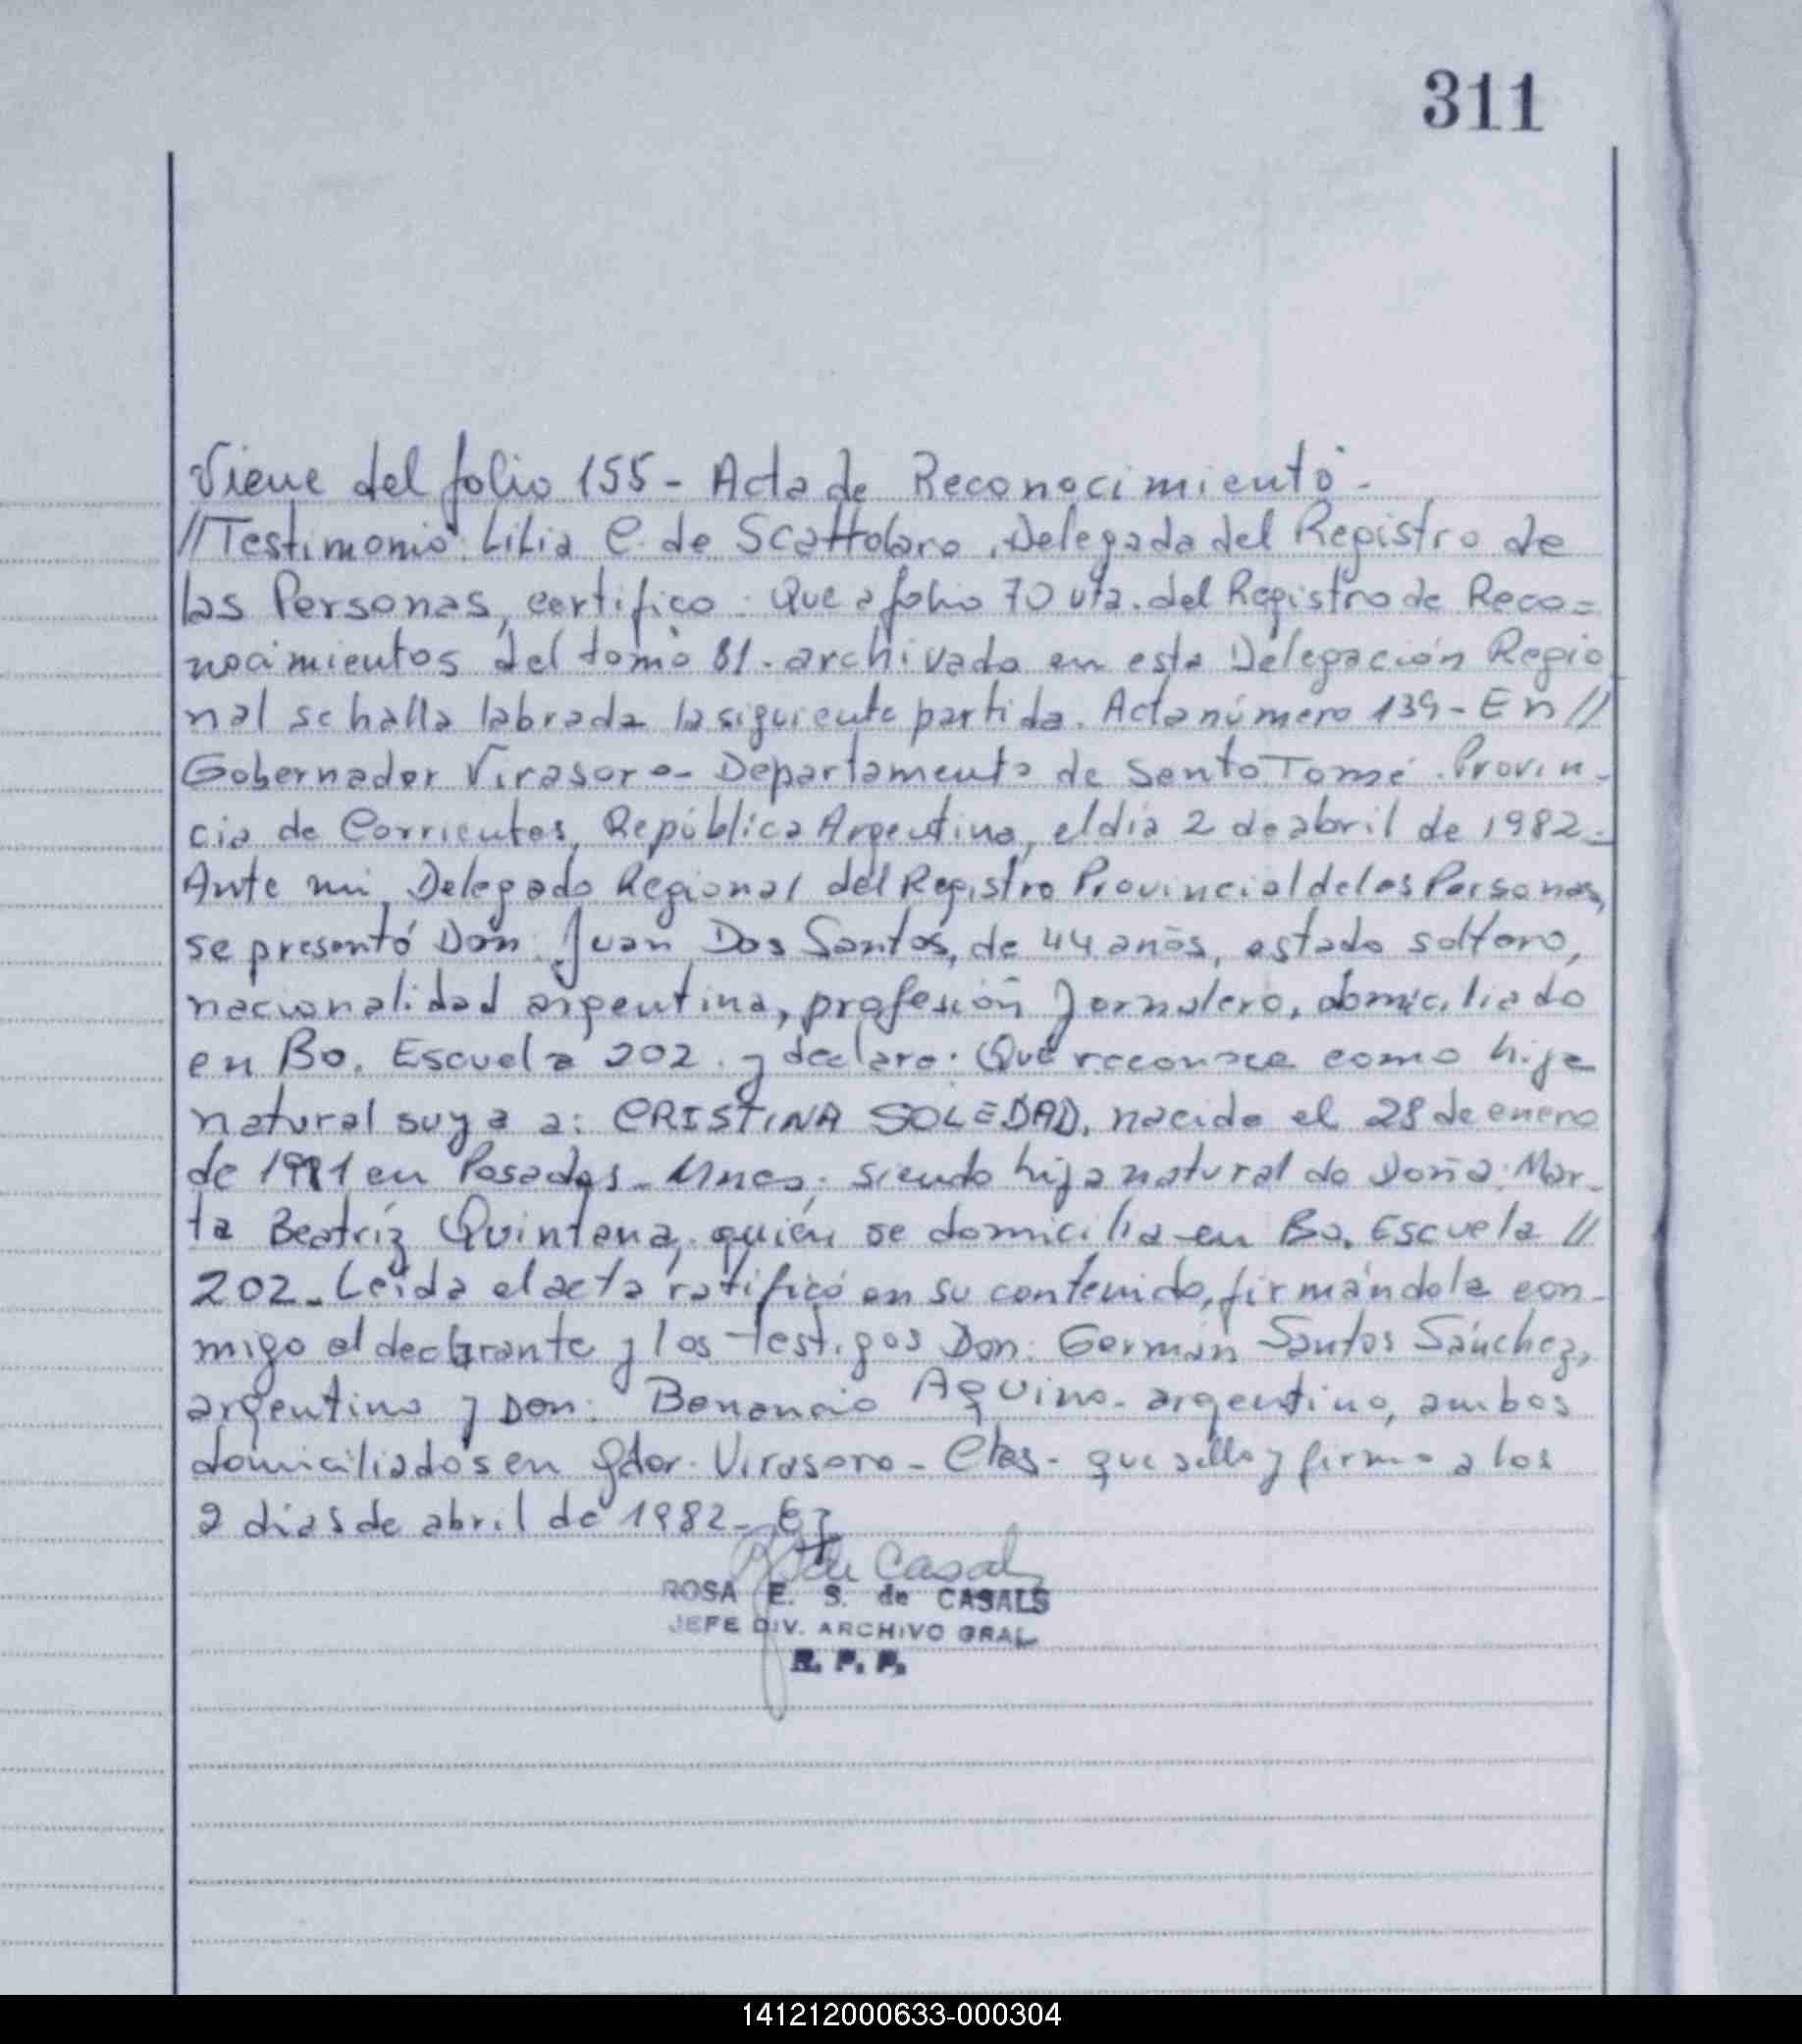 311
Viene del folio 155 - Acta de Reconocimiento -
//Testimonio: Lilia C. de Scattolaro, Delegada del Registro de
las Personas, certifico: Que a folio 70 vta. del Registro de Reco=
nocimientos del tomo 81. archivado en esta Delegación Regio
nal se halla labrada la siguiente partida. Acta número 139 - En //
Gobernador Virasoro - Departamento de Santo Tomé. Provin-
cia de Corrientes, República Argentina, el día 2 de abril de 1982 =
Ante mi, Delegado Regional del Registro Provincial de las Personas,
se presentó Don: Juan Dos Santos, de 44 años, estado soltero,
nacionalidad argentina, profesión Jornalero, domiciliado
en Bo. Escuela 202. y declaro: Que reconoce como hija
natural suya a: CRISTINA SOLEDAD, nacida el 28 de enero
de 1981 en Posadas - Mnes; siendo hija natural de Doña: Mar-
ta Beatríz Quintana, quién se domicilia en Bo. Escuela //
202 - Leída el acta ratificó en su contenido, firmándola con-
migo el declarante y los testigos Don: Germán Santos Sánchez,
argentino y Don: Bonancio Aquino - argentino, ambos
domiciliados en Gdor. Virasoro - Ctes - que sello y firmo a los
2 días de abril de 1982 -
de Casals
ROSA E. S. de CASALS
JEFE DIV. ARCHIVO GRAL
R. P. P.
141212000633-000304